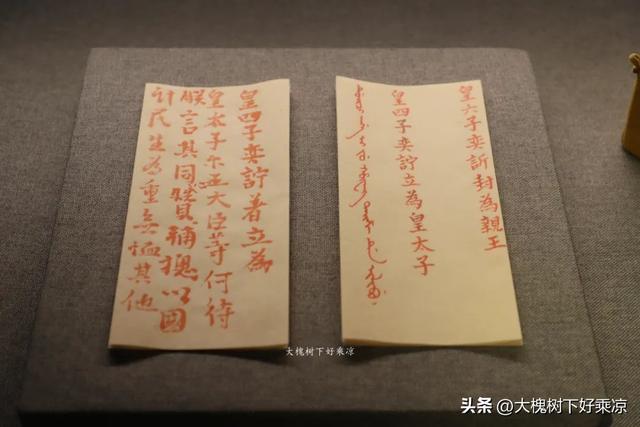 皇六子奕訢封為親王
皇四子奕詝立為皇太子
皇四子奕詝著立為
皇太子尔王大臣等何待
朕言其同心贊輔總以國
計民生為重無恤其他
大槐树下好乘凉
头条 @大槐树下好乘凉